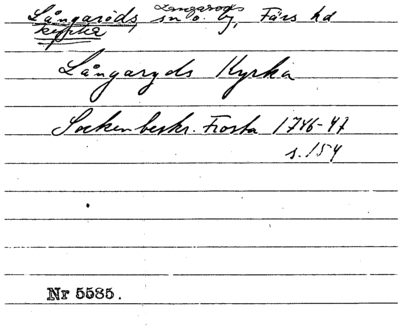 Långaröds Långaröds sn o. by, Färs hd
kyrka
Långaryds Kyrka
Sockenbeskr. Frosta 1746-47
s. 154
Nr 5585.